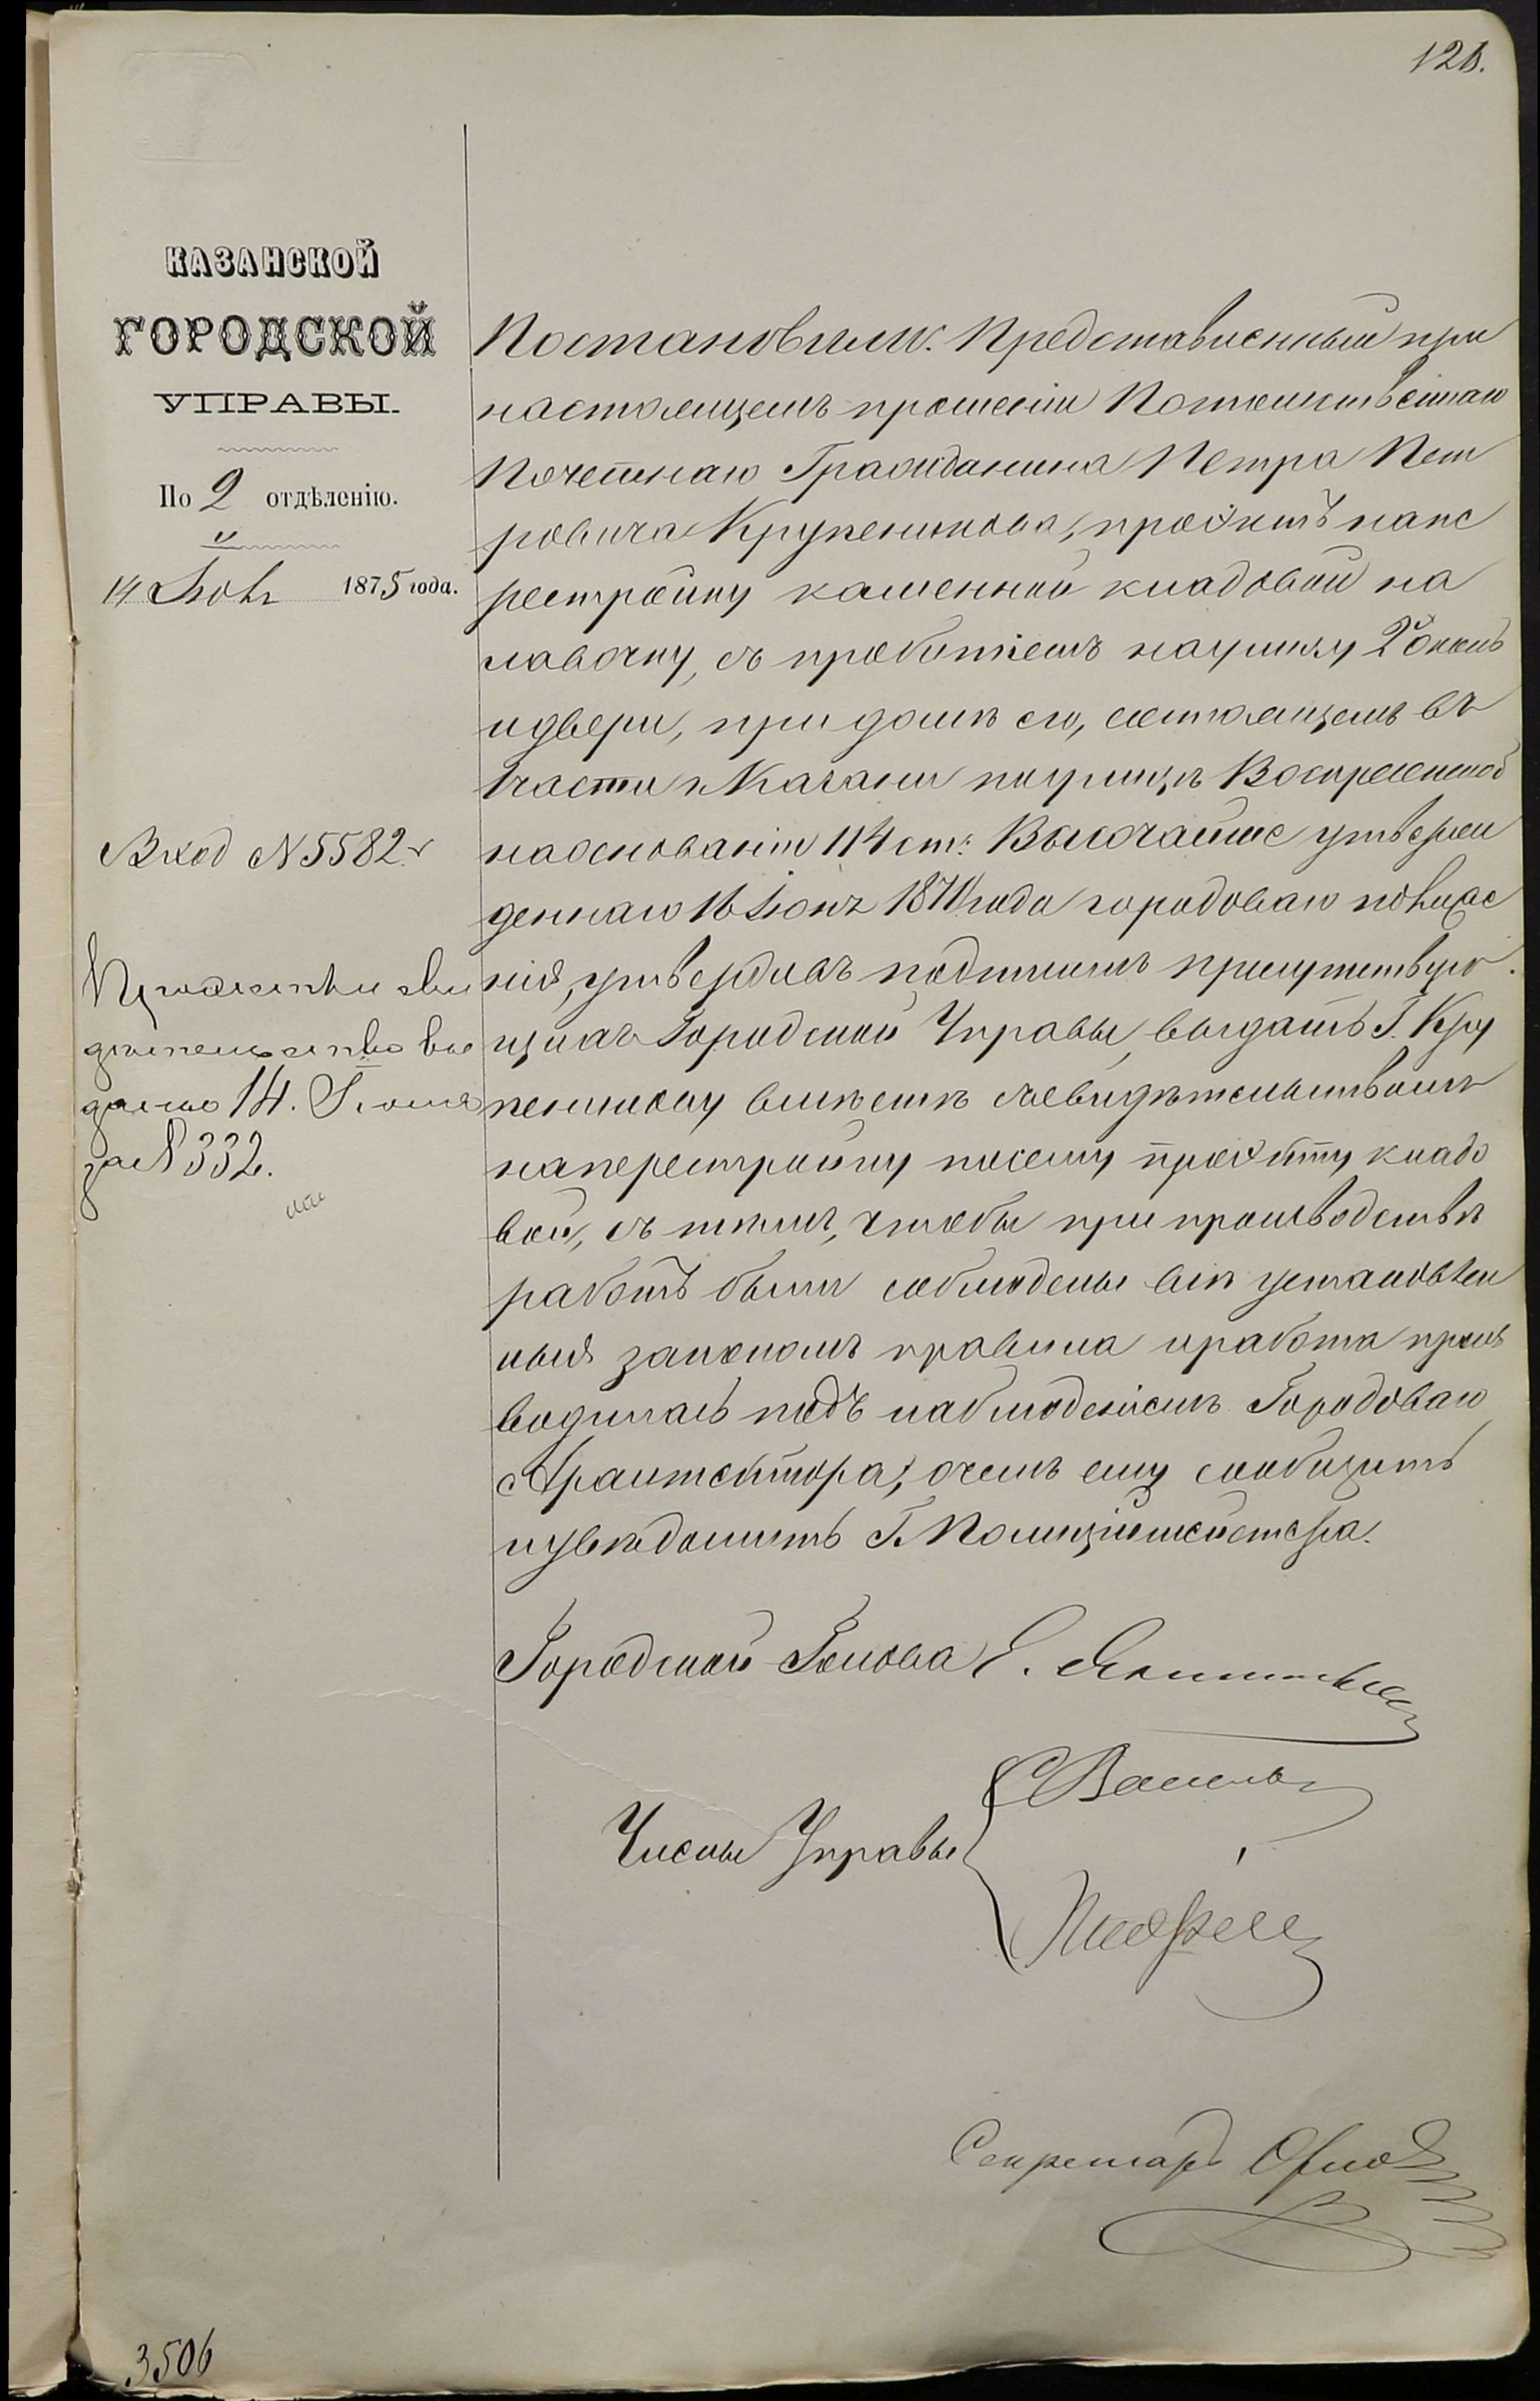 128.
КАЗАНСКОЙ
ГОРОДСКОЙ
УПРАВЫ.
По 2 отдѣленію.
14 Іюня 1875 года.
Вход № 5582
Проэктъ и сви
дѣтельство вы
даны 14. Іюня
за № 332.
Постановили: Представленный при
настоящемъ прошеніи Потомственнаго
Почетнаго Гражданина Петра Пет
ровича Крупеникова, проэктъ напе
рестройку каменной кладовой на
лавочку, съ пробитіемъ наулицу 2х оконъ
идвери, при домѣ его, состоящемъ въ
1 части г. Казани поулицѣ Воскресенской
наоснованіи 114 ст: Высочайше утвержен
деннаго 16 Іюня 1870 года городоваго положе
нія, утвердивъ подписомъ присутствую
щихъ Городской Управы, выдать Г. Кру
пеникову вмѣстѣ сосвидѣтельствомъ
наперестройку посему проэкту кладо
вой, съ тѣмъ, чтобы при производствѣ
работъ были соблюдены всѣ установлен
ныя закономъ правила иработа произ
водилась подъ наблюденіемъ Городоваго
Архитектора; очемъ ему сообщить
иувѣдомить Г. Полиціймейстера.
Городской Голова Е.
Члены Управы
Секретарь Орлов
3506